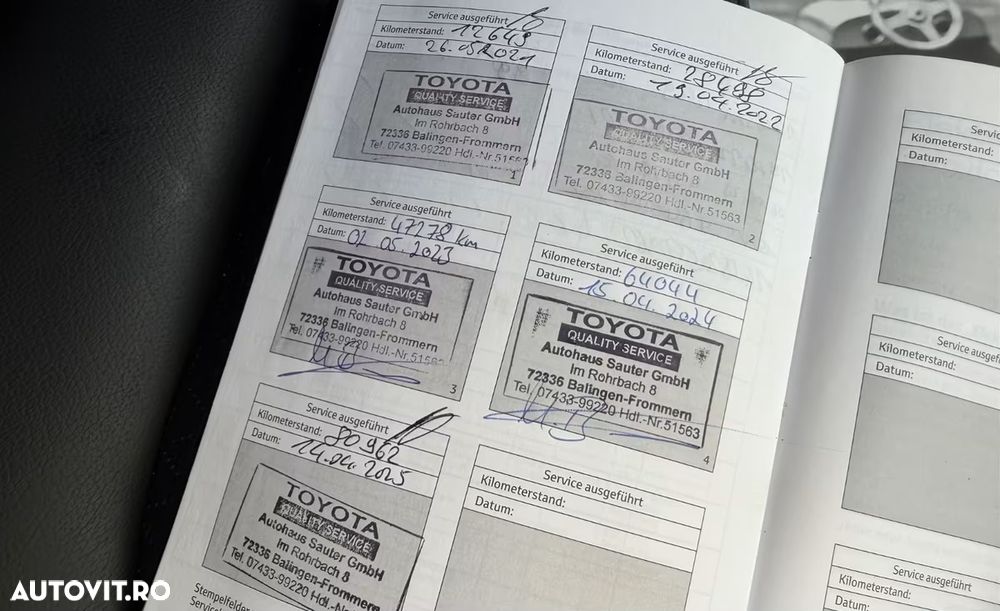 Service ausgeführt
Kilometerstand: 12649
Datum: 26.05.2021
TOYOTA
QUALITY-SERVICE
Autohaus Sauter GmbH
Im Rohrbach 8
72336 Balingen-Frommern
Tel. 07433-99220 Hdl.-Nr.51563
1
Service ausgeführt
Kilometerstand: 28498
Datum: 19.04.2022
TOYOTA
QUALITY-SERVICE
Autohaus Sauter GmbH
Im Rohrbach 8
72336 Balingen-Frommern
Tel. 07433-99220 Hdl.-Nr.51563
2
Service ausgeführt
Kilometerstand: 47278 km
Datum: 02.05.2023
TOYOTA
QUALITY-SERVICE
Autohaus Sauter GmbH
Im Rohrbach 8
72336 Balingen-Frommern
Tel. 07433-99220 Hdl.-Nr.51563
3
Service ausgeführt
Kilometerstand: 64044
Datum: 15.04.2024
TOYOTA
QUALITY SERVICE
Autohaus Sauter GmbH
Im Rohrbach 8
72336 Balingen-Frommern
Tel. 07433-99220 Hdl.-Nr.51563
4
Service ausgeführt
Kilometerstand: 80962
Datum: 14.04.2025
TOYOTA
QUALITY SERVICE
Autohaus Sauter GmbH
Im Rohrbach 8
72336 Balingen-Frommern
Tel. 07433-99220 Hdl.-Nr.51563
Service ausgeführt
Kilometerstand:
Datum:
Stempelfelder
Service
Service
Kilometerstand:
Datum:
Service ausgefü
Kilometerstand:
Datum:
Service ausgeführt
Kilometerstand:
Datum:
AUTOVIT.RO